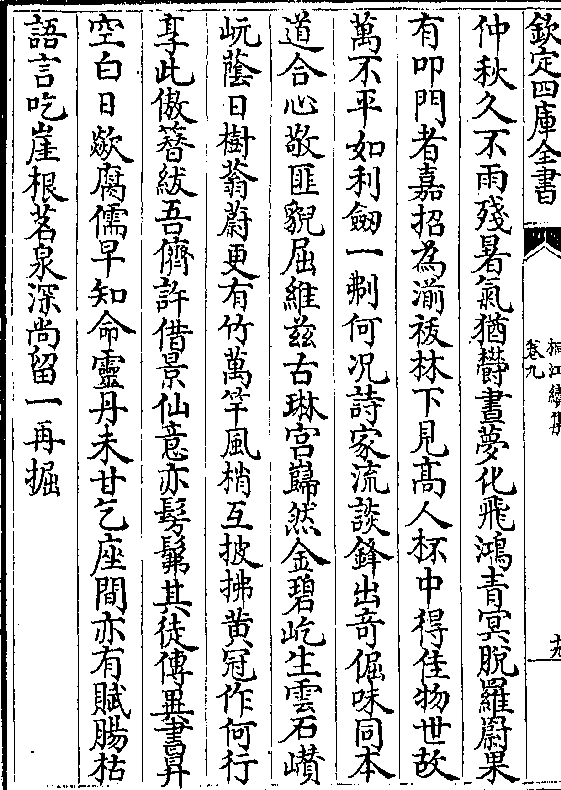 欽定四庫全書
桐江續集
卷九
十九
仲秋久不雨殘暑氣猶欝晝夢化飛鴻青冥脫羅罻果
有叩門者嘉招為湔祓林下見髙人杯中得佳物世故
萬不平如利劒一剸何况詩家流談鋒出竒倔味同本
道合心敬匪貌屈維兹古琳宫巋然金碧屹生雲石巑
岏蔭日樹蓊蔚更有竹萬竿風梢互披拂黄冠作何行
享此傲簪紱吾儕許借景仙意亦髣髴其徒傳異書昇
空白日歘腐儒早知命靈丹未甘乞座間亦有賦腸枯
語言吃崖根茗泉深尚留一再掘